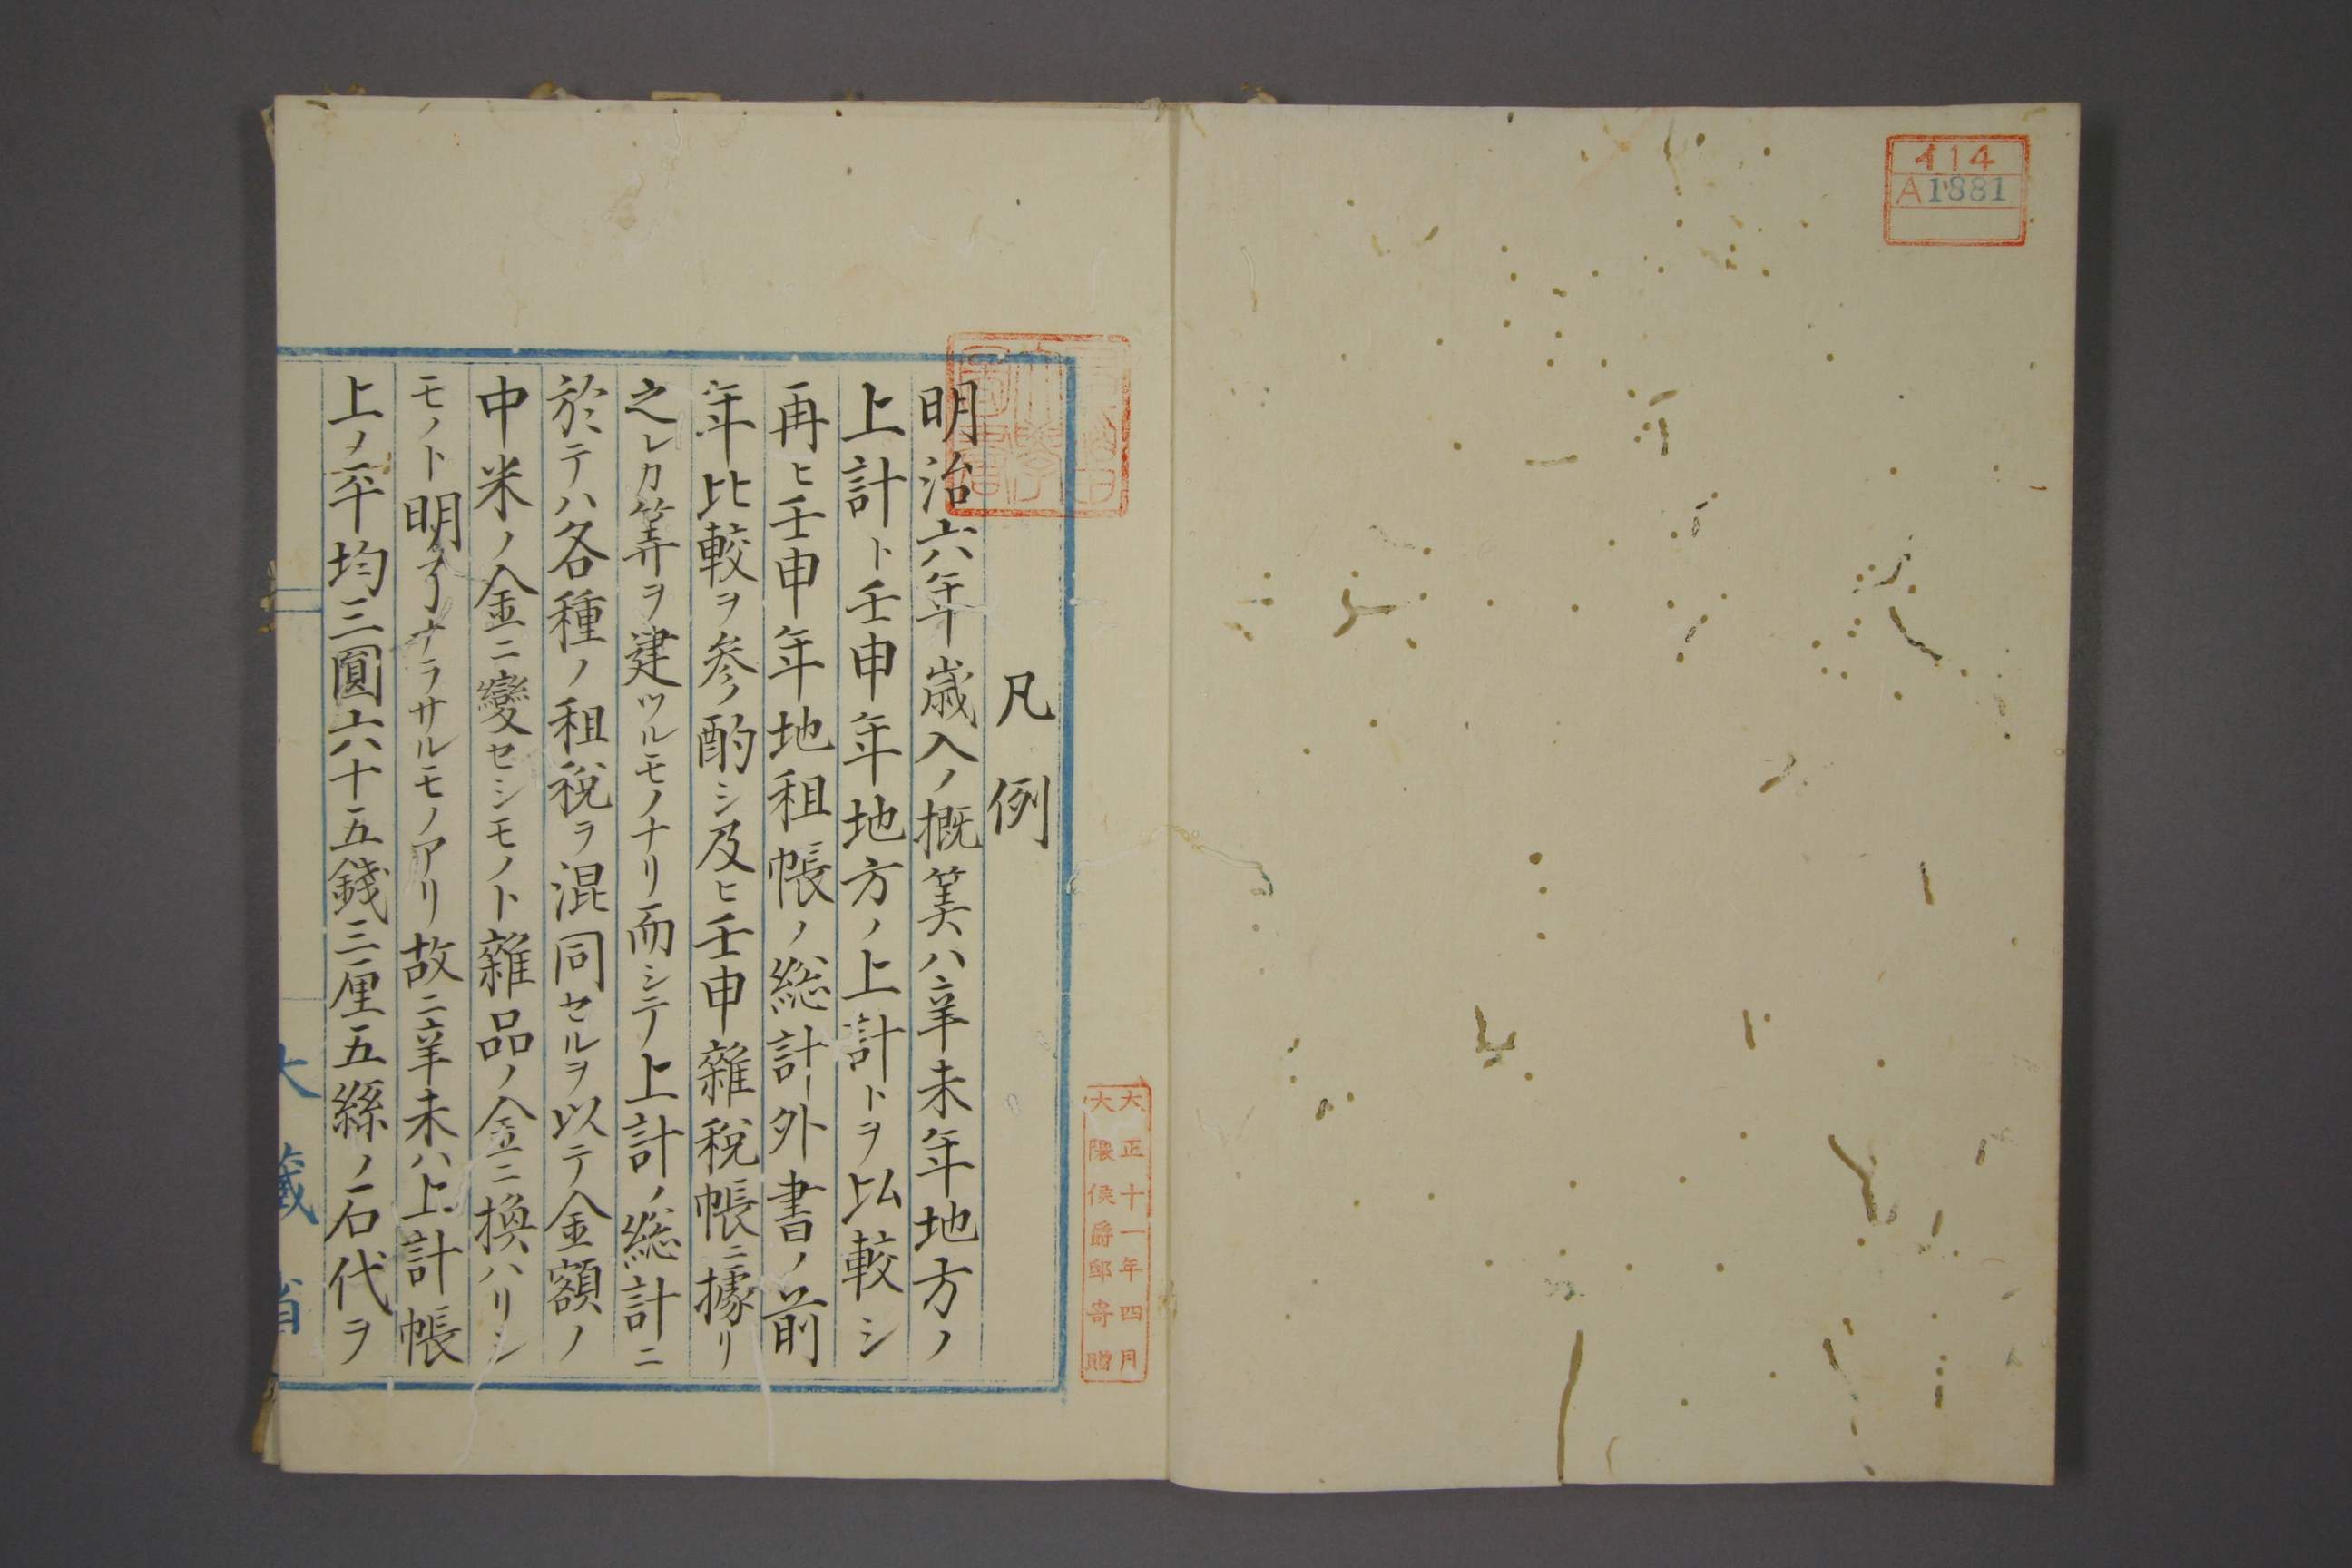 イ14
A1881
大正十一年四月
大隈侯爵邸寄贈
凡例
明治六年歳入ノ概筭ハ辛未年地方ノ
上計ト壬申年地方ノ上計トヲ以較シ
再ヒ壬申年地租帳ノ総計外書ノ前
年比較ヲ参酌シ及ヒ壬申雜税帳ニ據リ
之レカ筭ヲ建ツルモノナリ而シテ上計ノ総計ニ
於テハ各種ノ租税ヲ混同セルヲ以テ金額ノ
中米ノ金ニ變セシモノト雜品ノ金ニ換ハリシ
モノト明了ナラサルモノアリ故ニ辛未ハ上計帳
上ノ平均三圓六十五錢三厘五絲ノ石代ヲ
大藏省